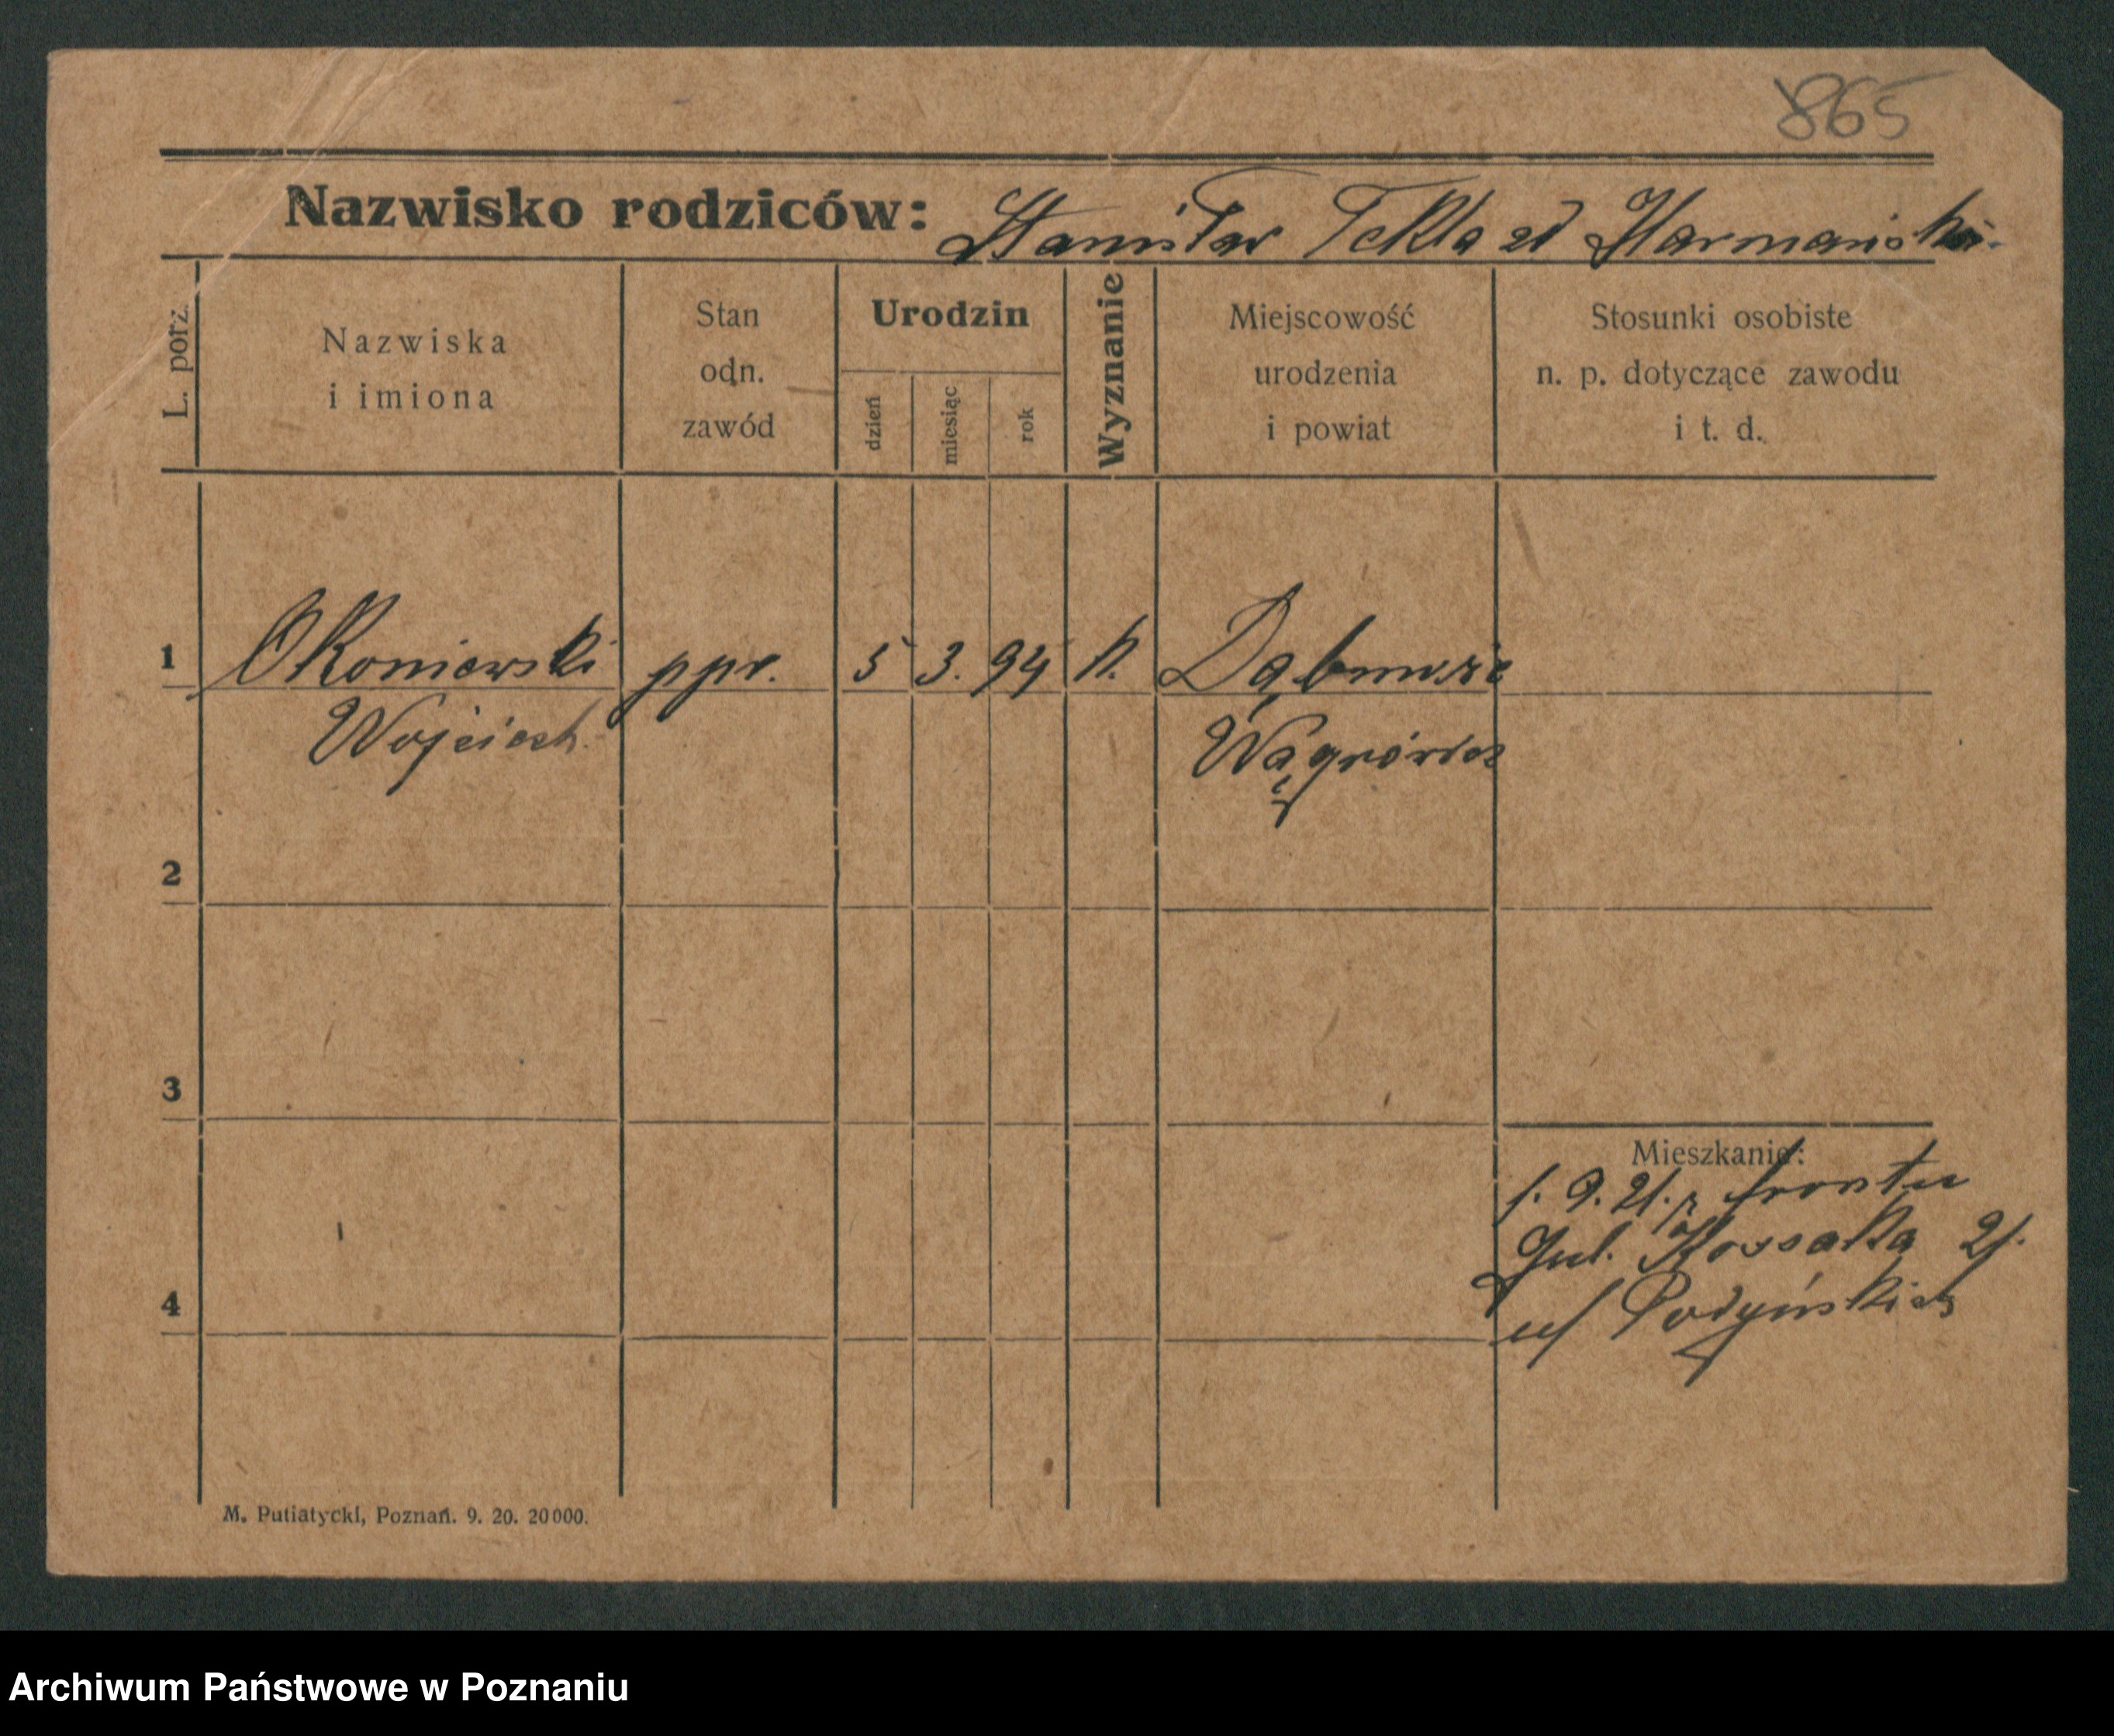 865
Nazwisko rodziców: Stanisław Tekla zd Harmańska.
L. porz.
Nazwiska
i imiona
Stan
odn.
zawód
Urodzin
dzień
miesiąc
rok
Wyznanie
Miejscowość
urodzenia
i powiat
Stosunki osobiste
n. p. dotyczące zawodu
i t. d.
1 Okoniewski ppr. 5 3. 94 k.
Wojciech. Wągrówiec
2
3
4
Mieszkanie:
1. 9. 21. z frontu
Jul. Kossaka 21.
u/
M. Putiatycki, Poznań. 9. 20. 20000.
Archiwum Państwowe w Poznaniu